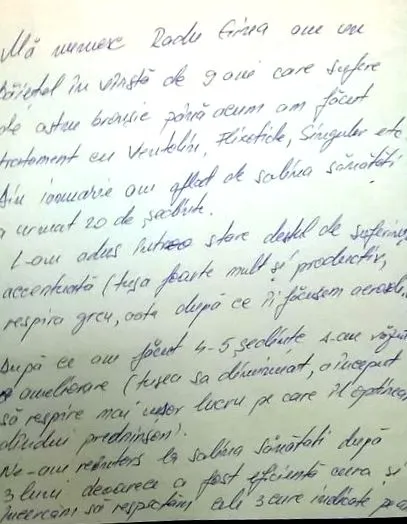 Mă numesc Radu Girea am un
băiețel în vîrstă de 9 ani care sufere
de astm bronșic până acum am făcut
tratament cu Ventolin, Flixotide, Singuler etc.
Din ianuarie am aflat de salina sănătăți
a urmat 20 de ședințe.
L-am adus într-o stare destul de
accentuată (tușa foarte mult și productiv,
respira greu, asta după ce îi făcusem
După ce am făcut 4-5 ședințe s-au
ameliorare (tușea sa diminuat, a început
să respire mai ușor lucru pe care îl
prednison).
Ne-am reîntors la salina sănătăți după
3 luni deoarece a fost eficientă cura și
încercăm să respectăm cele 3 cure indicate pe